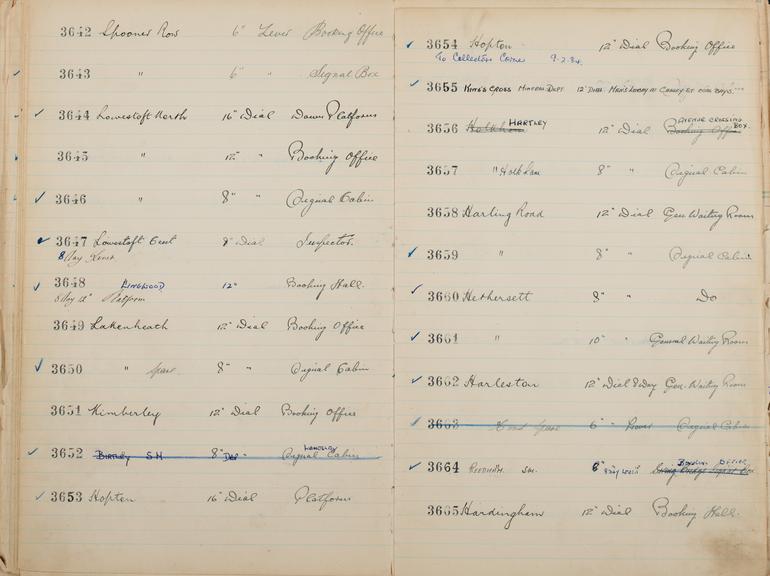 3642 Spooner Row 6" Lever Booking Office
3643 " 6" " Signal Box
3644 Lowestoft North 16" Dial Down Platform
3645 " 12" " Booking Office
3646 " 8" " Signal Cabin
3647 Lowestoft Cent 8" Dial Inspector.
8 Day Lever
3648 LINGWOOD 12" Booking Hall.
8 Day 12" Platform
3649 Lakenheath 12" Dial Booking Office
3650 " Spare 8" " Signal Cabin
3651 Kimberley 12" Dial Booking Office
3652 S.M. 8" Signal Cabin
3653 Hopton 16" Dial Platform
3654 Hopton 12" Dial Booking Office
To Collectors Corner 9.2.84.
3655 KING'S CROSS MINERAL DEPT. 12" DIAL MEN'S LOBBY AT
3656 HARTLEY 12" Dial Booking Office AVENUE CROSSING BOX.
3657 " 8" " Signal Cabin
3658 Harling Road 12" Dial Gen Waiting Room
3659 " 8" " Signal Cabin
3660 Hethersett 8" " Do
3661 " 10" " General Waiting Room
3662 Harleston 12" Dial 8 Day Gen. Waiting Room
3663 Spare 6" " Signal Cabin
3664 S.M. 6" 8 Day BOOKING OFFICE
3665 Hardingham 12" Dial Booking Hall.